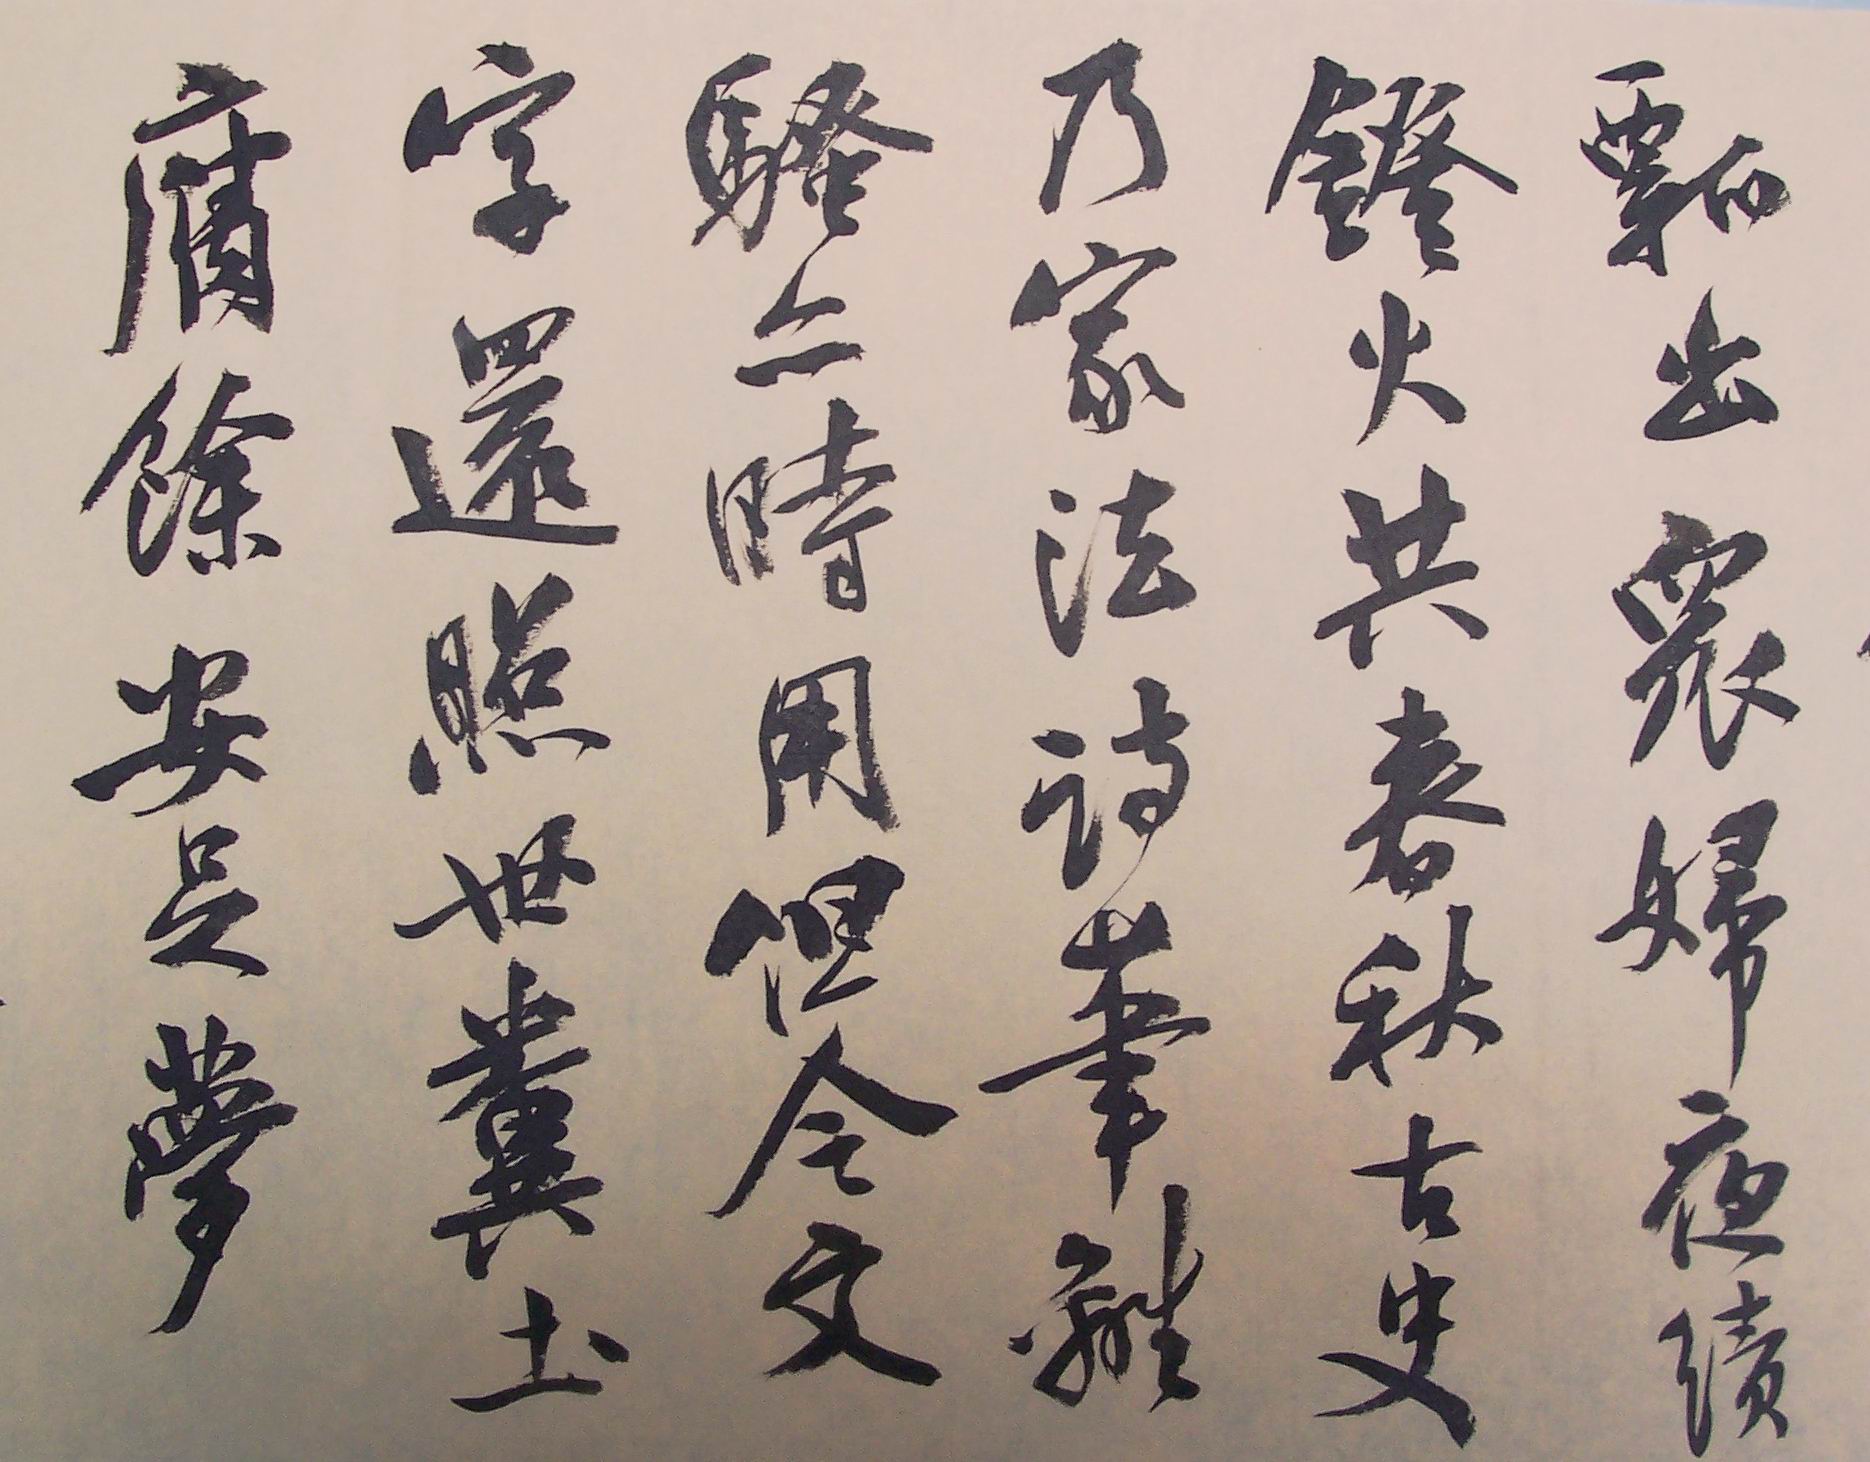 瓢出眾婦夜績
鐙火共春秋古史
乃家法詩筆離
騷亦時用但令文
字還照世糞土
腐餘安足夢